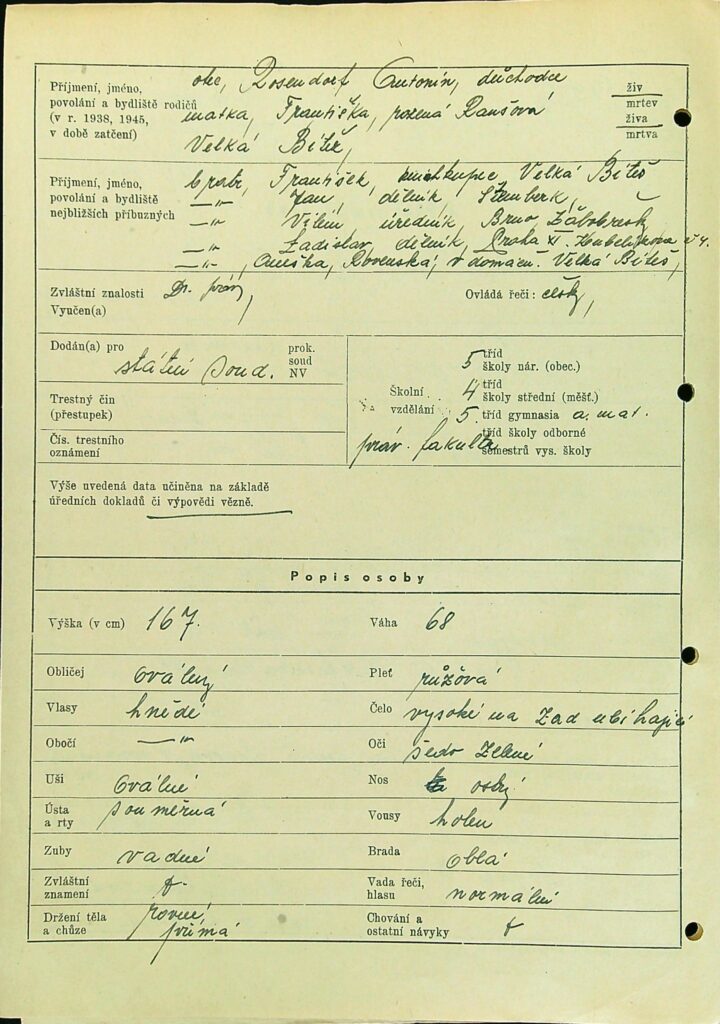 Příjmení, jméno, otec, Rosendorf Antonín, důchodce živ
povolání a bydliště rodičů matka, Františka, rozená Raušová mrtev
(v r. 1938, 1945, živa
v době zatčení) Velká Bíteš, mrtva
Příjmení, jméno, bratr, František, Velká Bíteš
povolání a bydliště —"— Jan, dělník, Šternberk,
nejbližších příbuzných —"— Vilém úředník, Brno Žabovřesk
—"— Ladislav, dělník, Praha XI. č 4.
—"—, Anežka, Rovenská, v domácn. Velká Bíteš,
Zvláštní znalosti Dr. práv, Ovládá řeči: česky,
Vyučen(a)
Dodán(a) pro státní soud. prok.
soud
NV
Trestný čin
(přestupek)
Čís. trestního
oznámení
Školní vzdělání
5 tříd školy nár. (obec.)
4 tříd školy střední (měšť.)
5. tříd gymnasia a. mat.
tříd školy odborné
práv. fakulta semestrů vys. školy
Výše uvedená data učiněna na základě
úředních dokladů či výpovědi vězně.
Popis osoby
Výška (v cm) 167. Váha 68
Obličej oválný Pleť růžová
Vlasy hnědé Čelo vysoké na zad ubíhající
Obočí —"— Oči šedo zelené
Uši oválné Nos ostrý
Ústa a rty souměrná Vousy holen
Zuby vadné Brada oblá
Zvláštní znamení Vada řeči, hlasu normální
Držení těla a chůze rovné, přímá Chování a ostatní návyky